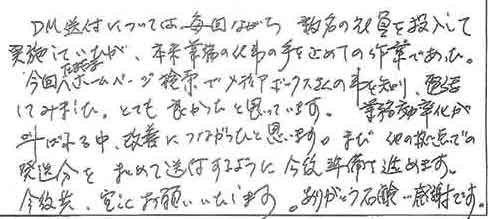 DM送付については、毎回ながら 数名の社員を投入して
実施していたが、本来業務の仕事の手を止めての作業であった。
今回たまたまホームページ検索でメディアボックスさんの事を知り、電話
してみました。とても良かったと思っています。 業務効率化が
叫ばれる中、改善につながったと思います。まだ 他の拠点での
発送分を まとめて送付するように 今後準備を進めます。
今後共、宜しくお願いいたします。ありがとう 感謝です。